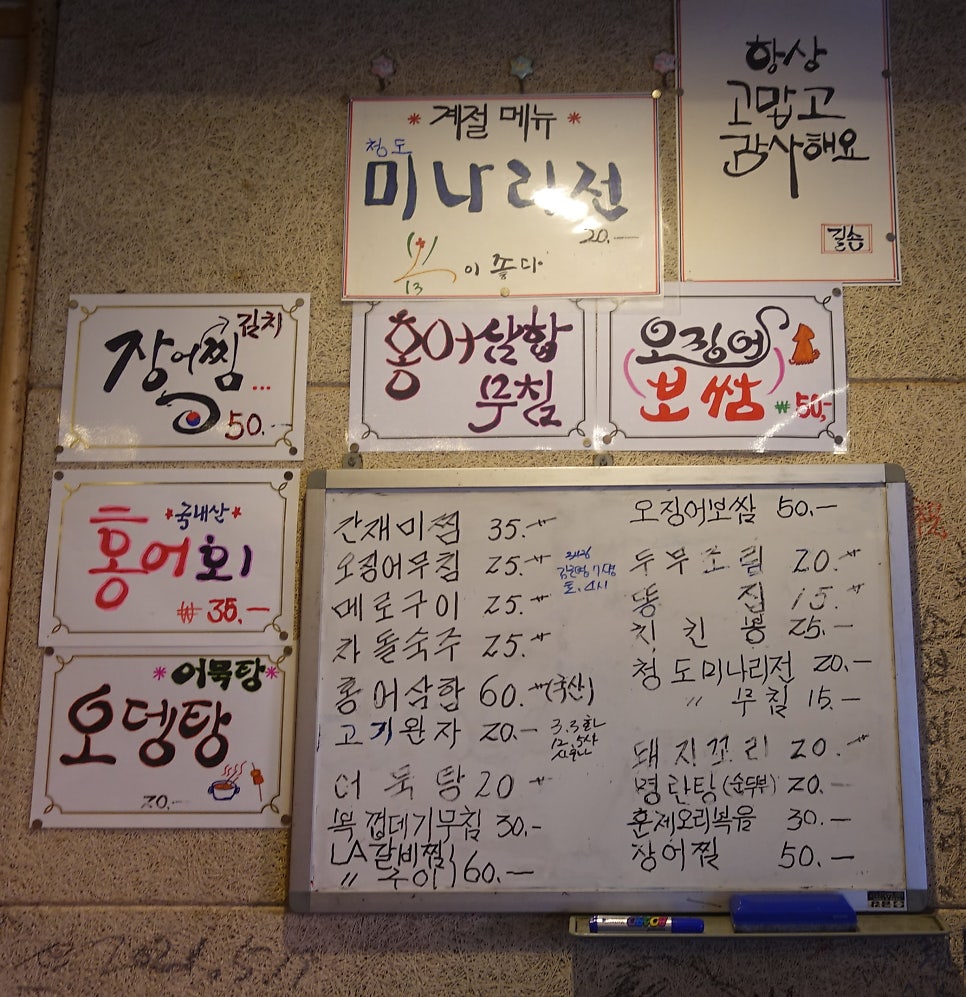 항상
고맙고
감사해요
길손
* 계절 메뉴 *
청도
미나리전
20.—
이 좋다
장어찜
50.—
홍어삼합
무침
오징어
(보쌈)
₩ 50,-
*국내산*
홍어회
₩ 35.—
*어묵탕*
오뎅탕
20.—
간재미찜 35.—
오징어무침 25.—
메로구이 25.—
차돌숙주 25.—
홍어삼합 60.—(국산)
고기완자 20.—
어묵탕 20 —
북껍데기무침 30.-
LA갈비찜
〃 구이 60.—
오징어보쌈 50.—
두부조림 20.—
똥집 15.—
치킨봉 25.—
청도미나리전 20.—
〃 무침 15.—
돼지꼬리 20.—
명란탕(순두부) 20.—
훈제오리볶음 30.—
장어찜 50.—